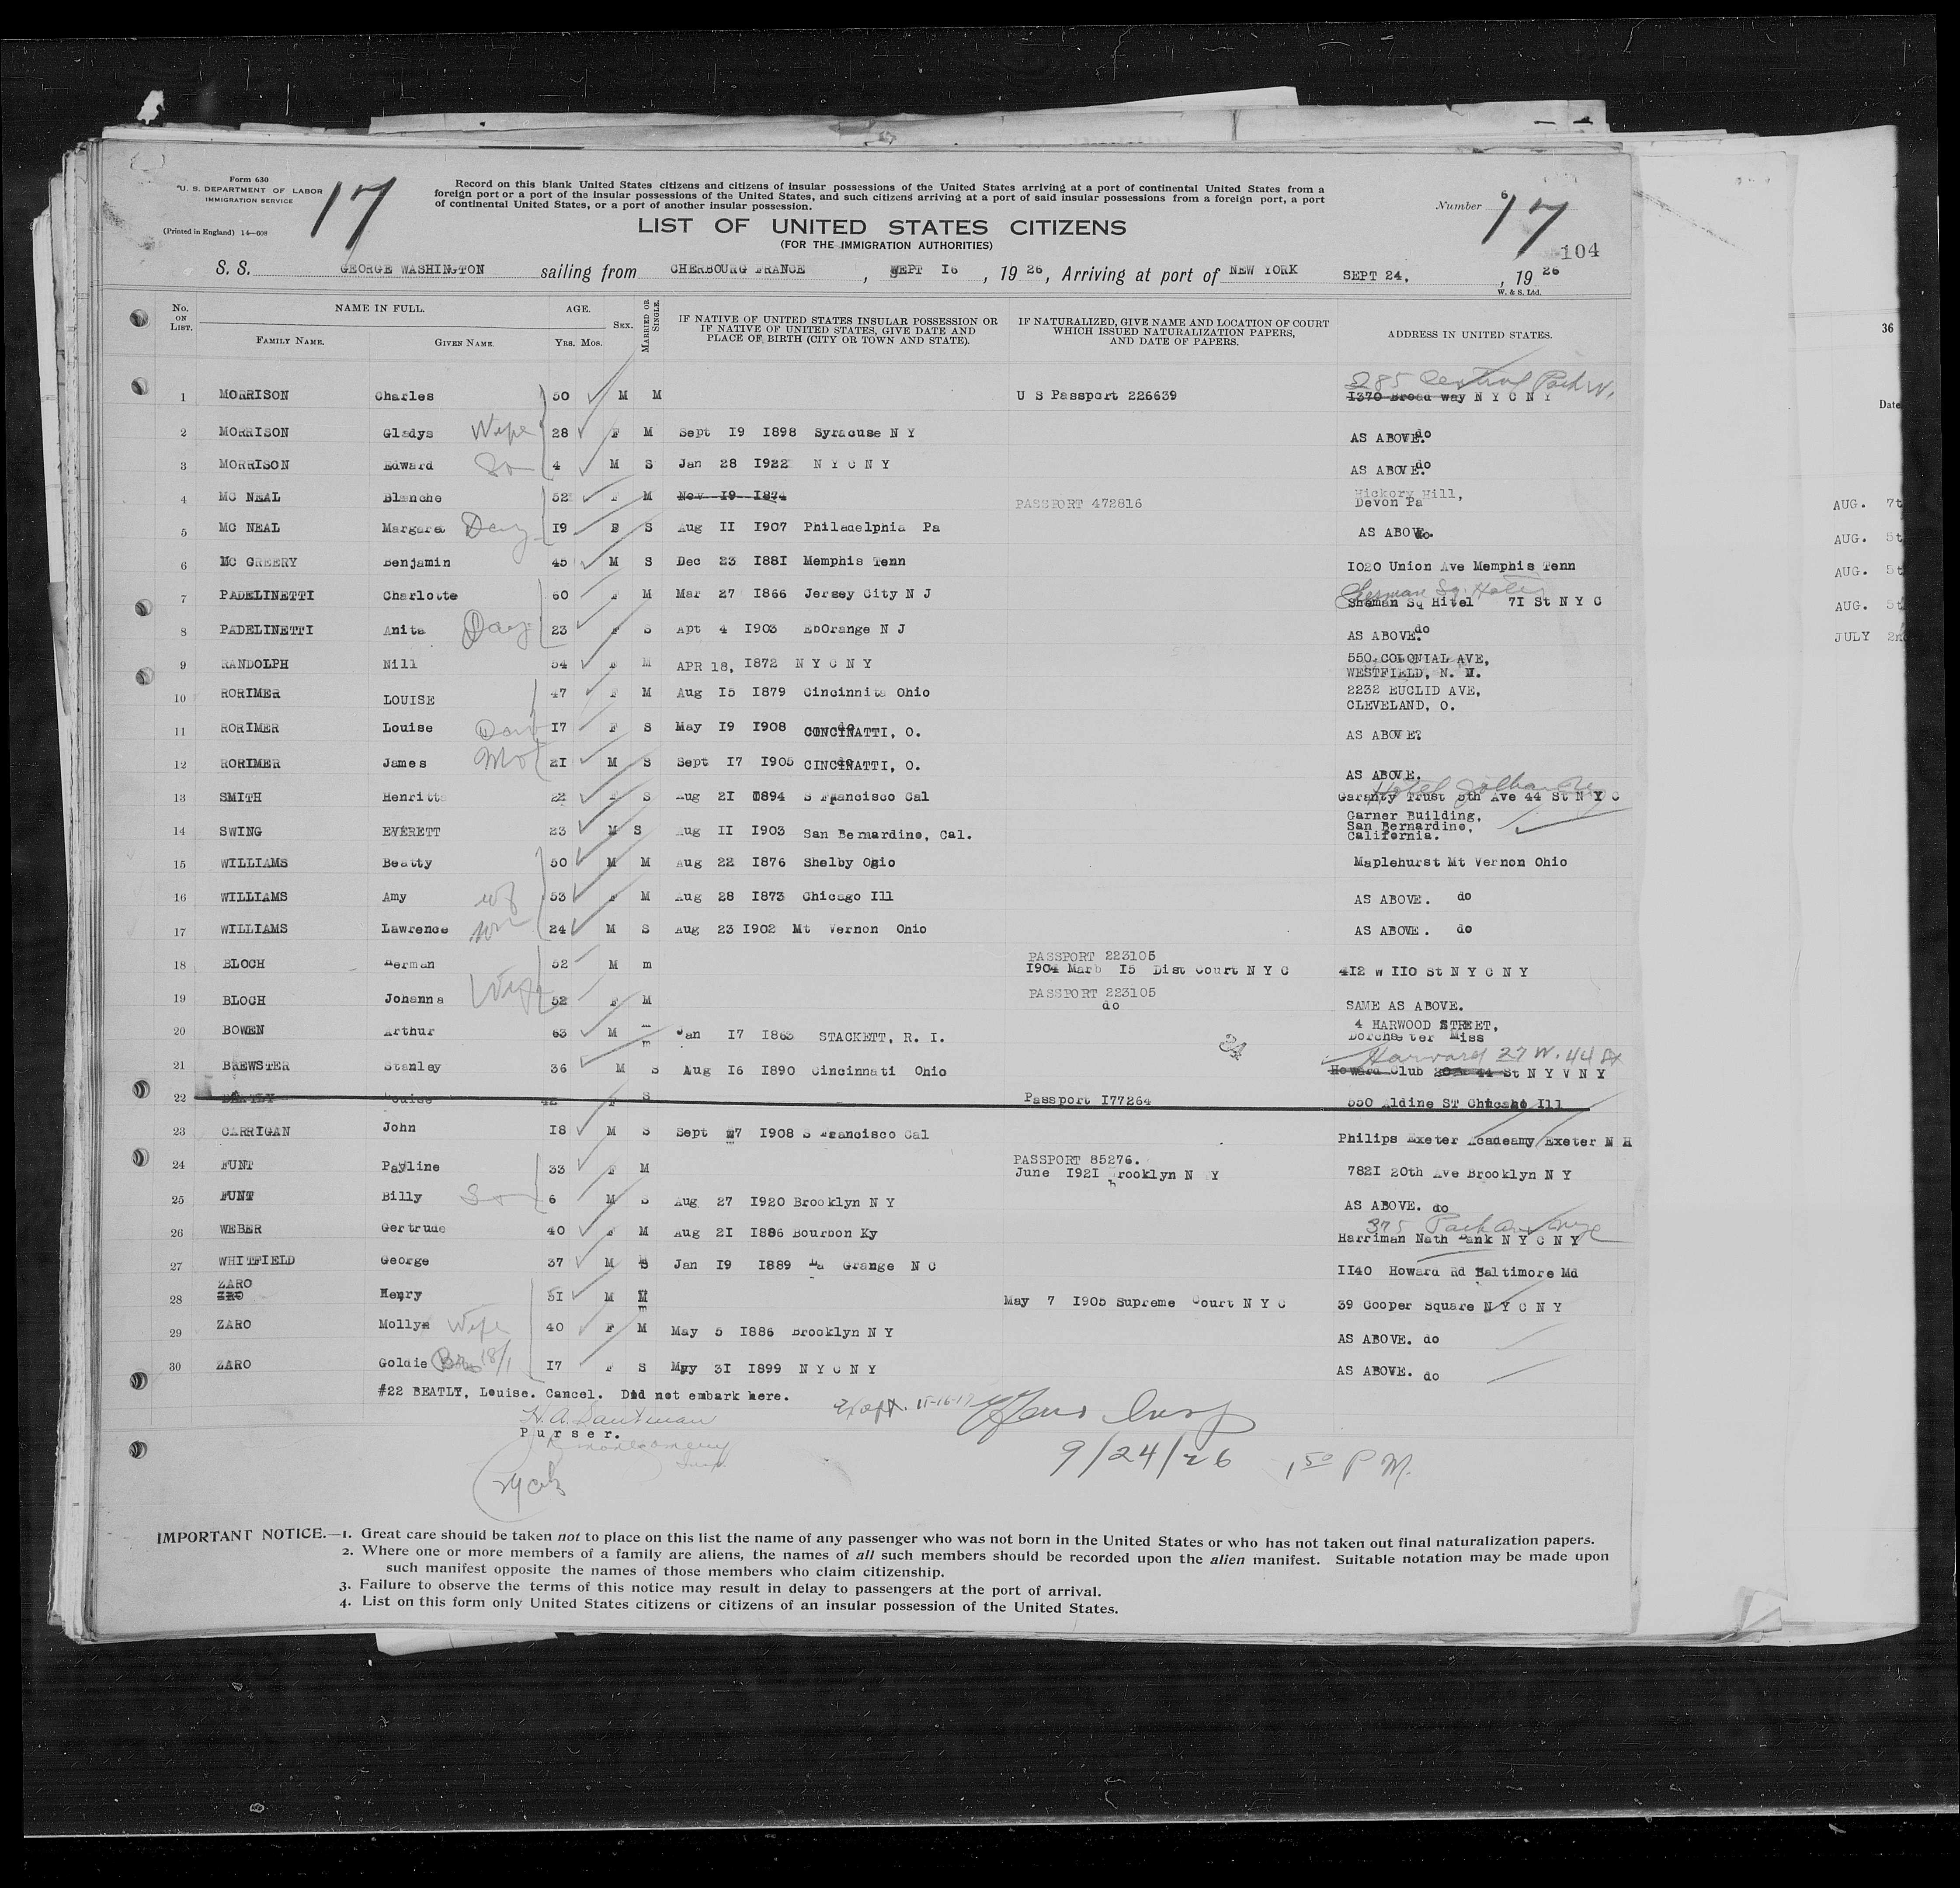 Form 630
U. S. DEPARTMENT OF LABOR
IMMIGRATION SERVICE
(Printed in England) 14—608
17
Record on this blank United States citizens and citizens of insular possessions of the United States arriving at a port of continental United States from a
foreign port or a part of the insular possessions of the United States, and such citizens arriving at a port of said insular possessions from a foreign port, a port
of continental United States, or a part of another insular possession.
LIST OF UNITED STATES CITIZENS
(FOR THE IMMIGRATION AUTHORITIES)
Number 6
17
104
S. S. GEORGE WASHINGTON sailing from CHERBOURG FRANCE, SEPT I6, 19 26, Arriving at port of NEW YORK SEPT 24, , 19 26
W. & S. Ltd.
No. ON LIST. NAME IN FULL. FAMILY NAME. GIVEN NAME. AGE. Yrs. Mos. SEX. MARRIED OR SINGLE. IF NATIVE OF UNITED STATES INSULAR POSSESSION OR IF NATIVE OF UNITED STATES, GIVE DATE AND PLACE OF BIRTH (CITY OR TOWN AND STATE). IF NATURALIZED, GIVE NAME AND LOCATION OF COURT WHICH ISSUED NATURALIZATION PAPERS, AND DATE OF PAPERS. ADDRESS IN UNITED STATES.
285 Central Park W.
1 MORRISON Charles 50 M M U S Passport 226639 I370 Broad way N Y C N Y
2 MORRISON Gladys Wife 28 F M Sept I9 I898 Syracuse N Y AS ABOVE. do
3 MORRISON Edward Son 4 M S Jan 28 I922 N Y C N Y AS ABOVE. do
4 MC NEAL Blanche 52 F M Nov I9 I874 PASSPORT 472816 Hickory Hill,
Devon Pa
5 MC NEAL Margaret Dau 19 F S Aug II I907 Philadelphia Pa AS ABOVE.
6 MC GREERY Benjamin 45 M S Dec 23 I88I Memphis Tenn I020 Union Ave Memphis Tenn
Sherman Sq. Hotel
7 PADELINETTI Charlotte 60 F M Mar 27 I866 Jersey City N J Sheman Sq Hitel 7I St N Y C
8 PADELINETTI Anita Dau 23 F S Apt 4 I903 EbOrange N J AS ABOVE. do
9 RANDOLPH Nill 54 F M APR 18, I872 N Y C N Y 550 COLONIAL AVE,
WESTFIELD, N. J.
10 RORIMER LOUISE 47 F M Aug I5 I879 Cincinnita Ohio 2232 EUCLID AVE,
CLEVELAND, O.
11 RORIMER Louise I7 F S May I9 I908 CINCINATTI, O. AS ABOVE?
12 RORIMER James 2I M S Sept I7 I905 CINCINATTI, O. AS ABOVE.
13 SMITH Henritta 22 F S Aug 2I I894 S Francisco Cal Garanty Trust 5th Ave 44 St N Y C
14 SWING EVERETT 23 M S Aug II I903 San Bernardino, Cal. Garner Building,
San Bernardino,
California.
15 WILLIAMS Beatty 50 M M Aug 22 I876 Shelby Ogio Maplehurst Mt Vernon Ohio
16 WILLIAMS Amy wf 53 F M Aug 28 I873 Chicago Ill AS ABOVE. do
17 WILLIAMS Lawrence son 24 M S Aug 23 I902 Mt Vernon Ohio AS ABOVE. do
18 BLOCH Herman 52 M m PASSPORT 223105
I904 Marb I5 Dist Court N Y C 4I2 W IIO St N Y C N Y
19 BLOCH Johanna Wife 52 F M PASSPORT 223105
do SAME AS ABOVE.
20 BOWEN Arthur 63 M m Jan I7 I863 STACKETT, R. I. 4 HARWOOD STREET,
Dorchester Miss
Harvard 27 W. 44 St
21 BREWSTER Stanley 36 M S Aug I6 I890 Cincinnati Ohio Howard Club 44 St N Y V N Y
22 BEATLY Louise 42 F S Passport I77264 550 Aldine ST Chicago Ill
23 CARRIGAN John I8 M S Sept 27 I908 S Francisco Cal Philips Exeter Academy Exeter N H
24 FUNT Payline 33 F M PASSPORT 85276.
June I92I Brooklyn N Y 782I 20th Ave Brooklyn N Y
25 FUNT Billy Son 6 M S Aug 27 I920 Brooklyn N Y AS ABOVE. do
375 Park Avenue
26 WEBER Gertrude 40 F M Aug 2I I886 Bourbon Ky Harriman Nath Bank N Y C N Y
27 WHITFIELD George 37 M S Jan I9 I889 La Grange N C II40 Howard Rd Baltimore Md
28 ZARO Henry 5I M M May 7 I905 Supreme Court N Y C 39 Cooper Square N Y C N Y
29 ZARO Mollye Wife 40 F M May 5 I886 Brooklyn N Y AS ABOVE. do
30 ZARO Goldie I7 F S May 3I I899 N Y C N Y AS ABOVE. do
#22 BEATLY, Louise. Cancel. Did not embark here.
Purser.
9/24/26 1 50 P M.
IMPORTANT NOTICE.—1. Great care should be taken not to place on this list the name of any passenger who was not born in the United States or who has not taken out final naturalization papers.
2. Where one or more members of a family are aliens, the names of all such members should be recorded upon the alien manifest. Suitable notation may be made upon
such manifest opposite the names of those members who claim citizenship.
3. Failure to observe the terms of this notice may result in delay to passengers at the port of arrival.
4. List on this form only United States citizens or citizens of an insular possession of the United States.
36
Date
AUG. 7t
AUG. 5t
AUG. 5t
AUG. 5t
JULY 2n